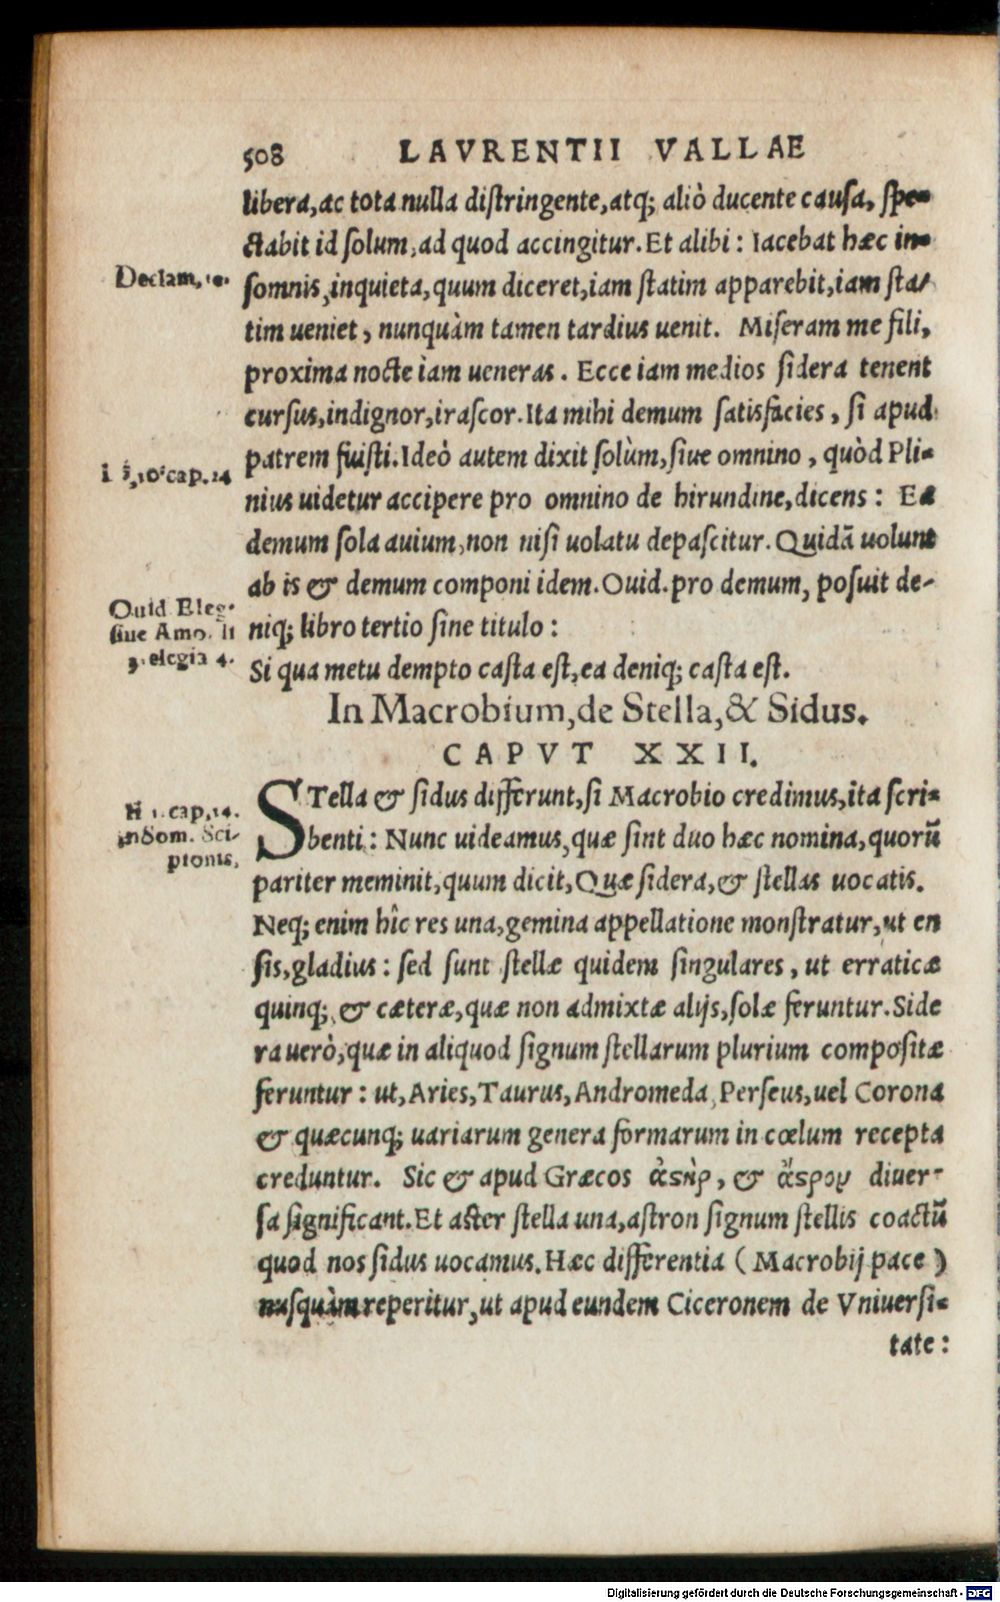 508 LAVRENTII VALLAE
libera, ac tota nulla distringente, atq; aliò ducente causa, spe-
ctabit id solum, ad quod accingitur. Et alibi: Iacebat hæc in-
Declam. 10.
somnis, inquieta, quum diceret, iam statim apparebit, iam sta-
tim ueniet, nunquàm tamen tardius uenit. Miseram me fili,
proxima nocte iàm ueneras. Ecce iam medios sidera tenent
cursus, indignor, irascor. Ita mihi demum satisfacies, si apud
patrem fuisti. Ideò autem dixit solùm, siue omnino, quòd Pli-
cap. 24
nius uidetur accipere pro omnino de hirundine, dicens: Ea
demum sola auium, non nisi uolatu depascitur. Quidã uolunt
ab is & demum componi idem. Ouid. pro demum, posuit de-
Ouid Eleg.
siue Amo. li
3. elegia 4.
niq; libro tertio sine titulo:
Si qua metu dempto casta est, ea deniq; casta est.
In Macrobium, de Stella, & Sidus.
CAPVT XXII.
li 1. cap. 14.
in Som. Sci-
pionis,
STella & sidus differunt, si Macrobio credimus, ita scri-
benti: Nunc uideamus, quæ sint duo hæc nomina, quorũ
pariter meminit, quum dicit, Quæ sidera, & stellas uocatis.
Neq; enim hîc res una, gemina appellatione monstratur, ut en
sis, gladius: sed sunt stellæ quidem singulares, ut erraticæ
quinq; & cæteræ, quæ non admixtæ alijs, solæ feruntur. Side
ra uerò, quæ in aliquod signum stellarum plurium compositæ
feruntur: ut, Aries, Taurus, Andromeda, Perseus, uel Corona
& quæcunq; uariarum genera formarum in cœlum recepta
creduntur. Sic & apud Græcos ἀςὴρ, & ἄςρον diuer-
sa significant. Et aster stella una, astron signum stellis coactũ
quod nos sidus uocamus. Hæc differentia (Macrobij pace)
nusquàm reperitur, ut apud eundem Ciceronem de Vniuersi-
tate:
Digitalisierung gefördert durch die Deutsche Forschungsgemeinschaft - DFG